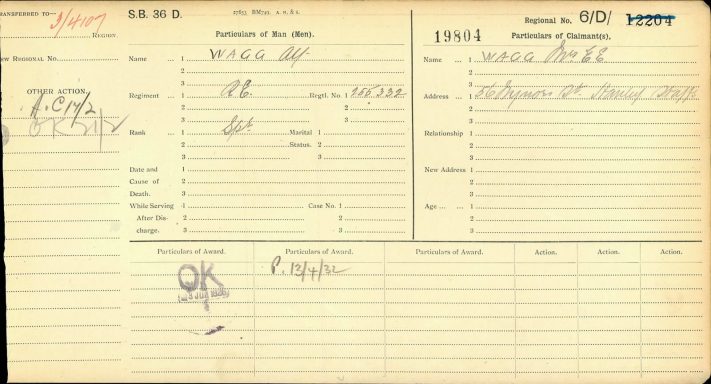 TRANSFERRED TO
3/4107
REGION.
NEW REGIONAL No.
OTHER ACTION.
A.C 17/2
OK 21/2
S.B. 36 D.
Particulars of Man (Men).
Name 1 WAGG Alf
2
3
Regiment 1 R.E. Regtl. No. 1 255332
2 2
3 3
Rank 1 Spr Marital 1
2 Status. 2
3 3
Date and 1
Cause of 2
Death. 3
While Serving 1 Case No. 1
After Dis- 2 2
charge. 3 3
Regional No. 6/D/ 12204
19804 Particulars of Claimant(s).
Name 1 WAGG Mrs E E
2
3
Address 1 56 St. Staffs
2
3
Relationship 1
2
3
New Address 1
2
3
Age 1
2
3
Particulars of Award. Particulars of Award. Particulars of Award. Action. Action. Action.
OK P. 13/4/32
1926